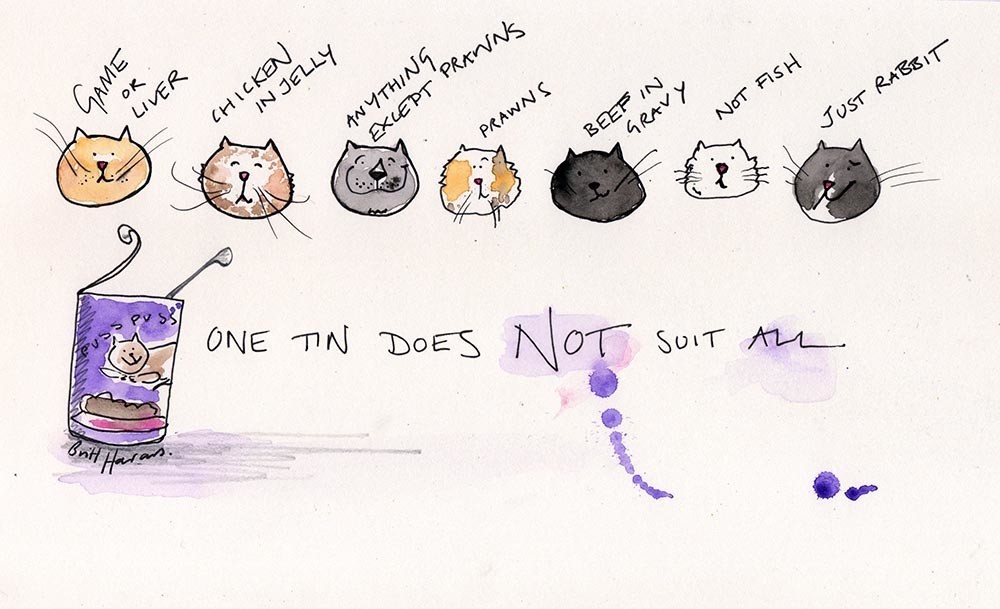 GAME
OR
LIVER
CHICKEN
IN JELLY
ANYTHING
EXCEPT PRAWNS
PRAWNS
BEEF IN
GRAVY
NOT FISH
JUST RABBIT
PUSS PUSS
ONE TIN DOES NOT SUIT ALL